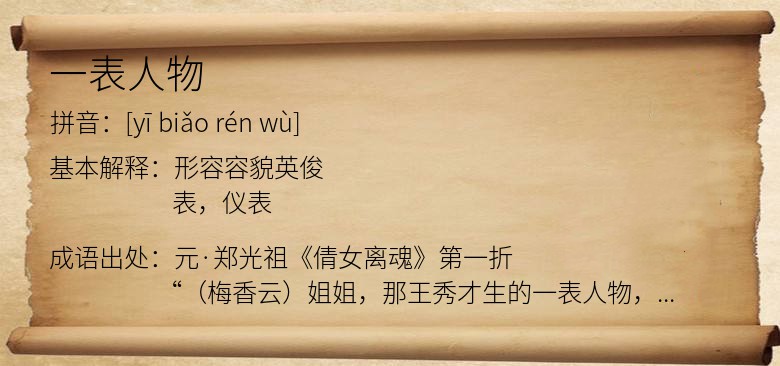 一表人物
拼音：[yī biǎo rén wù]
基本解释：形容容貌英俊
表，仪表
成语出处：元·郑光祖《倩女离魂》第一折
“（梅香云）姐姐，那王秀才生的一表人物，...